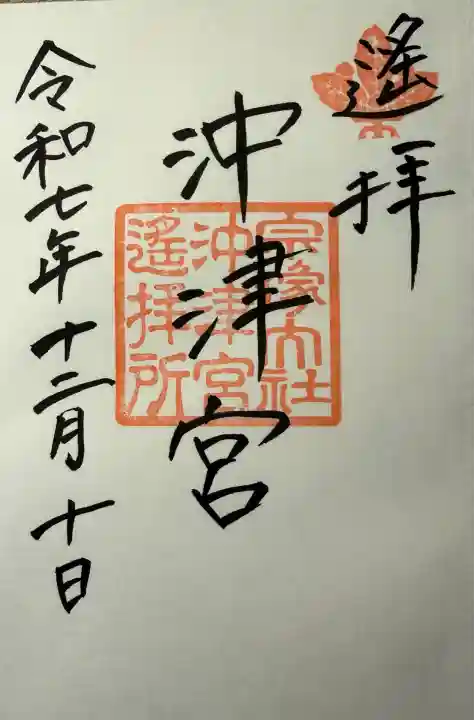 遙拝
沖津宮
宗像大社
沖津宮
遙拝所
令和七年十二月十日